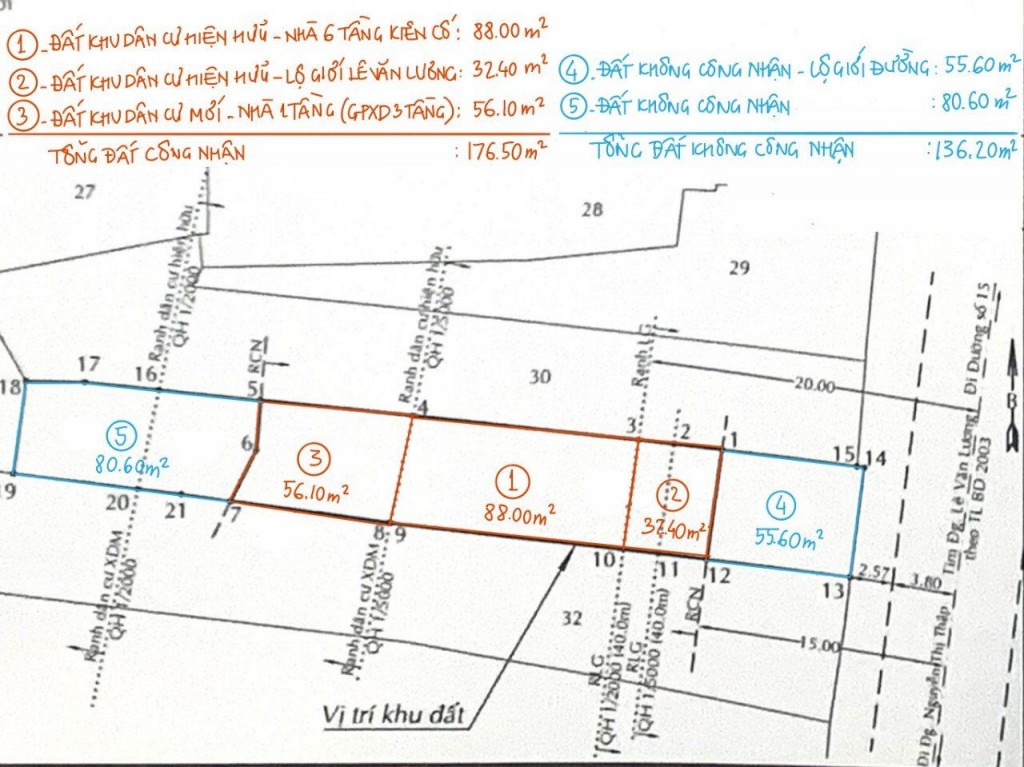 ① - ĐẤT KHU DÂN CƯ HIỆN HỮU - NHÀ 6 TẦNG KIÊN CỐ : 88.00 m²
② - ĐẤT KHU DÂN CƯ HIỆN HỮU - LỘ GIỚI LÊ VĂN LƯƠNG : 32.40 m²
③ - ĐẤT KHU DÂN CƯ MỚI - NHÀ 1 TẦNG (GPXD 3 TẦNG) : 56.10 m²
TỔNG ĐẤT CÔNG NHẬN : 176.50 m²
④ - ĐẤT KHÔNG CÔNG NHẬN - LỘ GIỚI ĐƯỜNG : 55.60 m²
⑤ - ĐẤT KHÔNG CÔNG NHẬN : 80.60 m²
TỔNG ĐẤT KHÔNG CÔNG NHẬN : 136.20 m²
27
28
29
30
Ranh dân cư hiện hữu
QH 1/2000
Ranh dân cư hiện hữu
QH 1/5000
RCN
Ranh LG
20.00
18
17
16
5
4
3
2
1
15
14
6
⑤
80.60 m²
③
56.10 m²
①
88.00 m²
②
32.40 m²
④
55.60 m²
19
20
21
7
8
9
10
11
12
13
2.57
3.80
15.00
32
Ranh dân cư XDM
QH 1/2000
Ranh dân cư XDM
QH 1/5000
RLG
QH 1/2000 (40.0m)
RLG
QH 1/5000 (40.0m)
RCN
Vị trí khu đất
Tim Đg. Lê Văn Lương
theo TL BD 2003
Đi Đường số 15
Đi Đg. Nguyễn Thị Thập
B